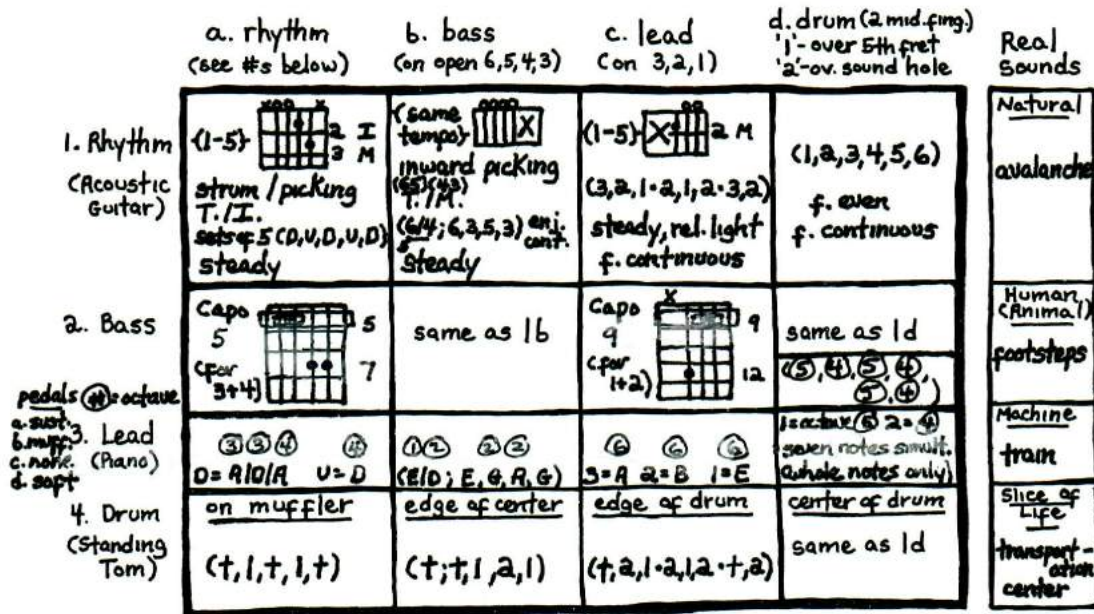 a. rhythm
(see #s below)
b. bass
(on open 6,5,4,3)
c. lead
(on 3,2,1)
d. drum (2 mid. fing.)
'1'- over 5th fret
'2'-ov. sound hole
Real
Sounds
1. Rhythm
(Acoustic
Guitar)
xoo x
{1-5}
2 I
3 M
strum/picking
T./I.
sets of 5 (D,U,D,U,D)
steady
{same
tempo}
oooo
X
inward picking
(65)(43)
T./M.
(6/4; 6,3,5,3)
5
cont.
steady
{1-5}
oo
X
2 M
(3,2,1·2,1,2·3,2)
steady, rel. light
f. continuous
(1,2,3,4,5,6)
f. even
f. continuous
Natural
avalanche
2. Bass
Capo
5
(for
3+4)
5
7
same as 1b
Capo
9
(for
1+2)
x
9
12
same as 1d
(5, 4, 5, 4,
5, 4)
Human
(Animal)
footsteps
pedals (#)=octave
a. sust.
b. muff.
c. none.
d. soft
3. Lead
(Piano)
3 3 4 4
D=A/D/A U=D
1 2 2 2
(E/D; E,G,A,G)
6 6 6
3=A 2=B 1=E
1=octave 5 2=4
seven notes simult.
(whole notes only)
Machine
train
4. Drum
(Standing
Tom)
on muffler
(t,1,t,1,t)
edge of center
(t;t,1,2,1)
edge of drum
(t,2,1·2,1,2·t,2)
center of drum
same as 1d
Slice of
Life
transport-
ation
center